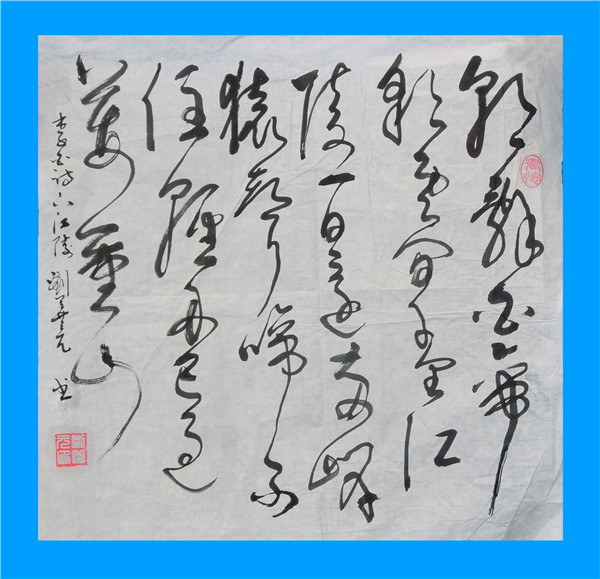 朝辭白帝
彩雲間千里江
陵一日還兩岸
猿聲啼不
住輕舟已過
萬重山
李白詩下江陵 劉元书